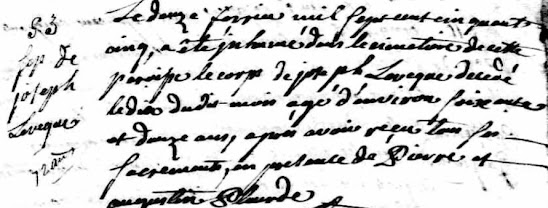 S3
sep de
joseph
Leveque
72 ans
Le douze fevrier mil sept cent cinquante
cinq, a été jnhumé dans le cimetiere de cette
paroisse le corps de joseph Leveque decedé
le dix dudit mois agé d'environ soixante
et douze ans, aprés avoir reçu tous ses
sacrements, en presence de Pierre et
augustin Plourde